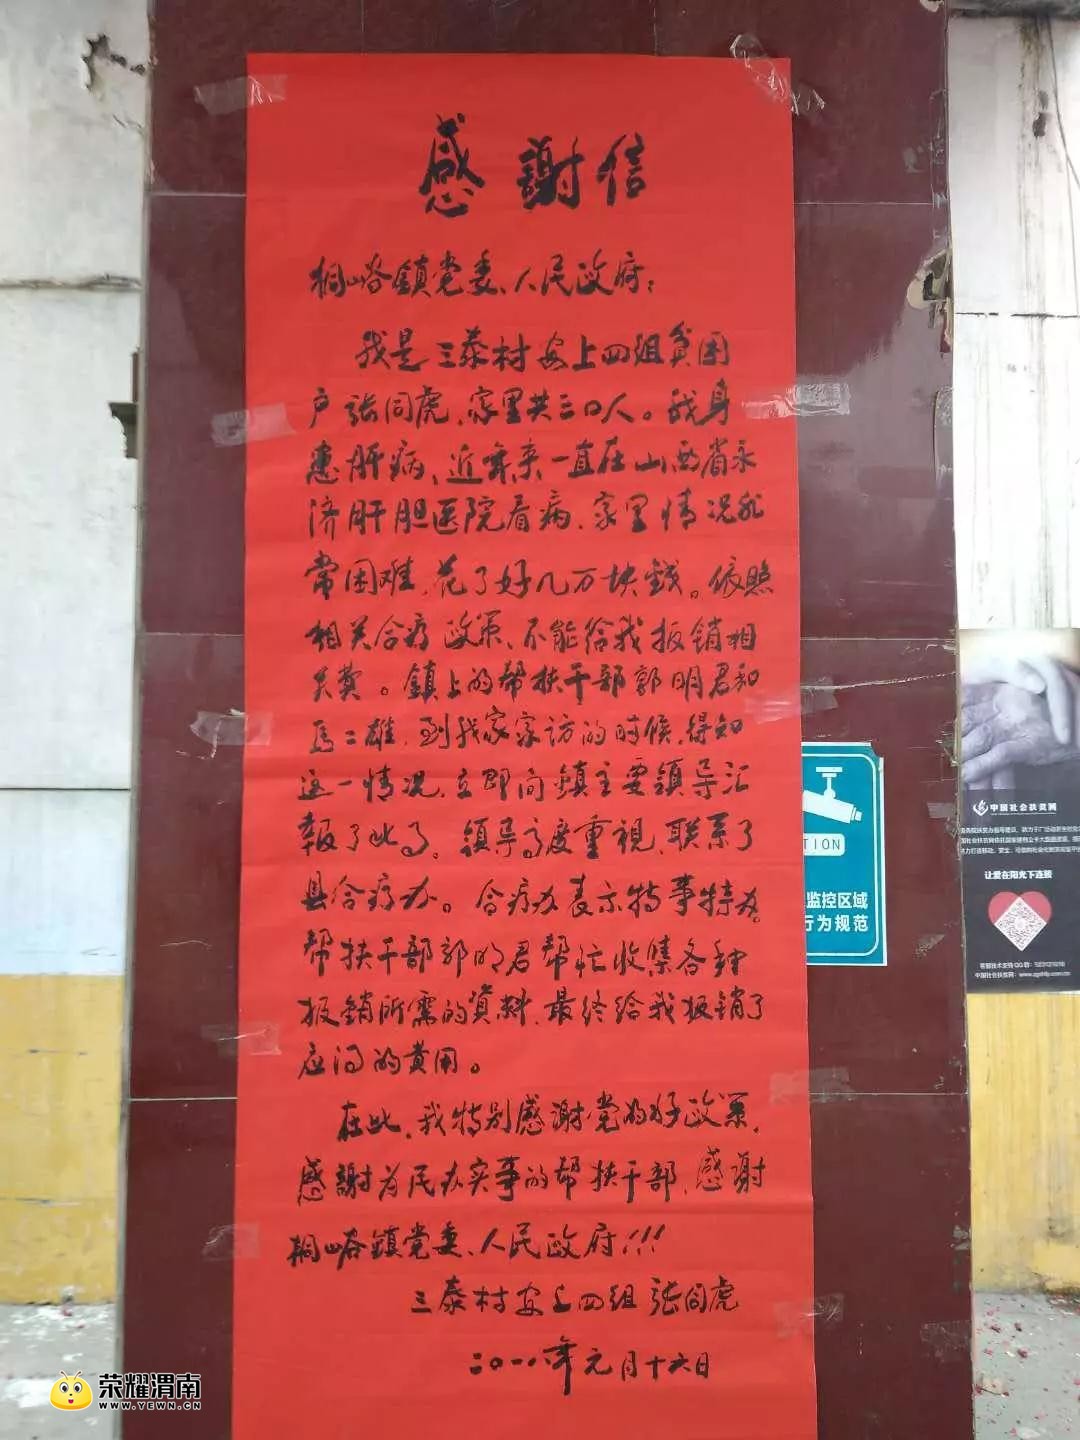 感謝信
桐峪鎮党委、人民政府:
我是三泰村安上四组貧困
户张同虎、家里共三口人。我身
患肝病、近年来一直在山西省永
济肝胆医院看病、家里情况非
常困难、花了好几万块錢。依照
相关合疗政策、不能给我报销相
关费。鎮上的帮扶干部郭明君和
馬二雄、到我家家访的时候、得知
这一情况、立即向鎮主要領导汇
報了此事。領导高度重視、联系了
县合疗办。合疗办表示特事特办。
帮扶干部郭明君帮忙收集各种
报銷所需的資料、最终给我报销了
应得的费用。
在此、我特别感謝党的好政策、
感謝为民办实事的帮扶干部、感谢
桐峪鎮党委、人民政府!!!
三泰村安上四组 张同虎
二〇一八年元月十六日
TION
监控区域
行为规范
中国社会扶贫网
让爱在阳光下连接
荣耀渭南
WWW.YEWN.CN